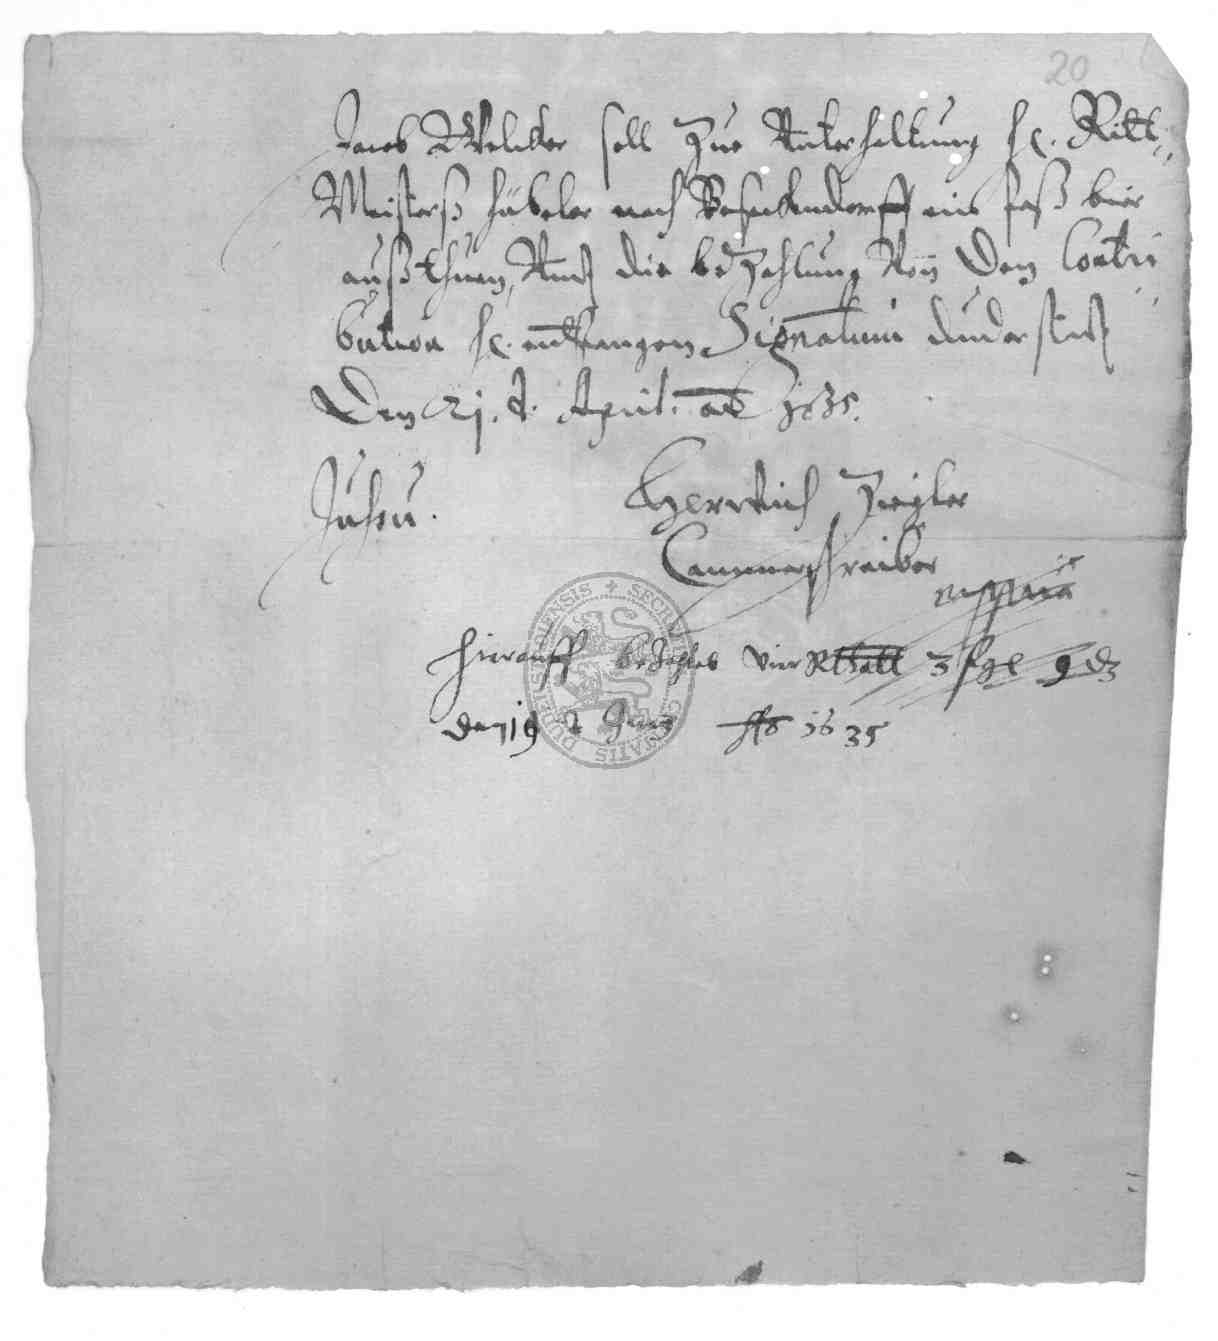 20
Jacob Wolcker soll Zue Unterhaltung H. Ritt-
Meisterß Häbeler nach Beseckendorff ein faß bier
außthuen, Undt die bezahlung Von Den Contri-
bution H. entfangen. Signatum Duderstadt
Den 21. t. April. ao 1635.
Jussu.
Ziegler
Cammerschreiber
hierauff bezahlet vier Rthall 3 sgl 9 d
den 19 Ao 1635
SECRETUM CIVITATIS DUDERSTADENSIS